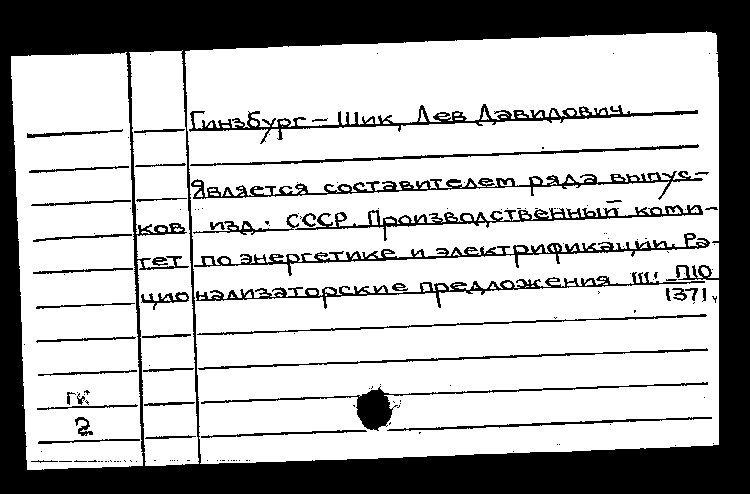 Гинзбург – Шик, Лев Давидович.
Является составителем ряда выпус-
ков изд.: СССР. Производственный коми-
тет по энергетике и электрификации. Ра-
ционализаторские предложения Ш! П10
1371.
ГК
2